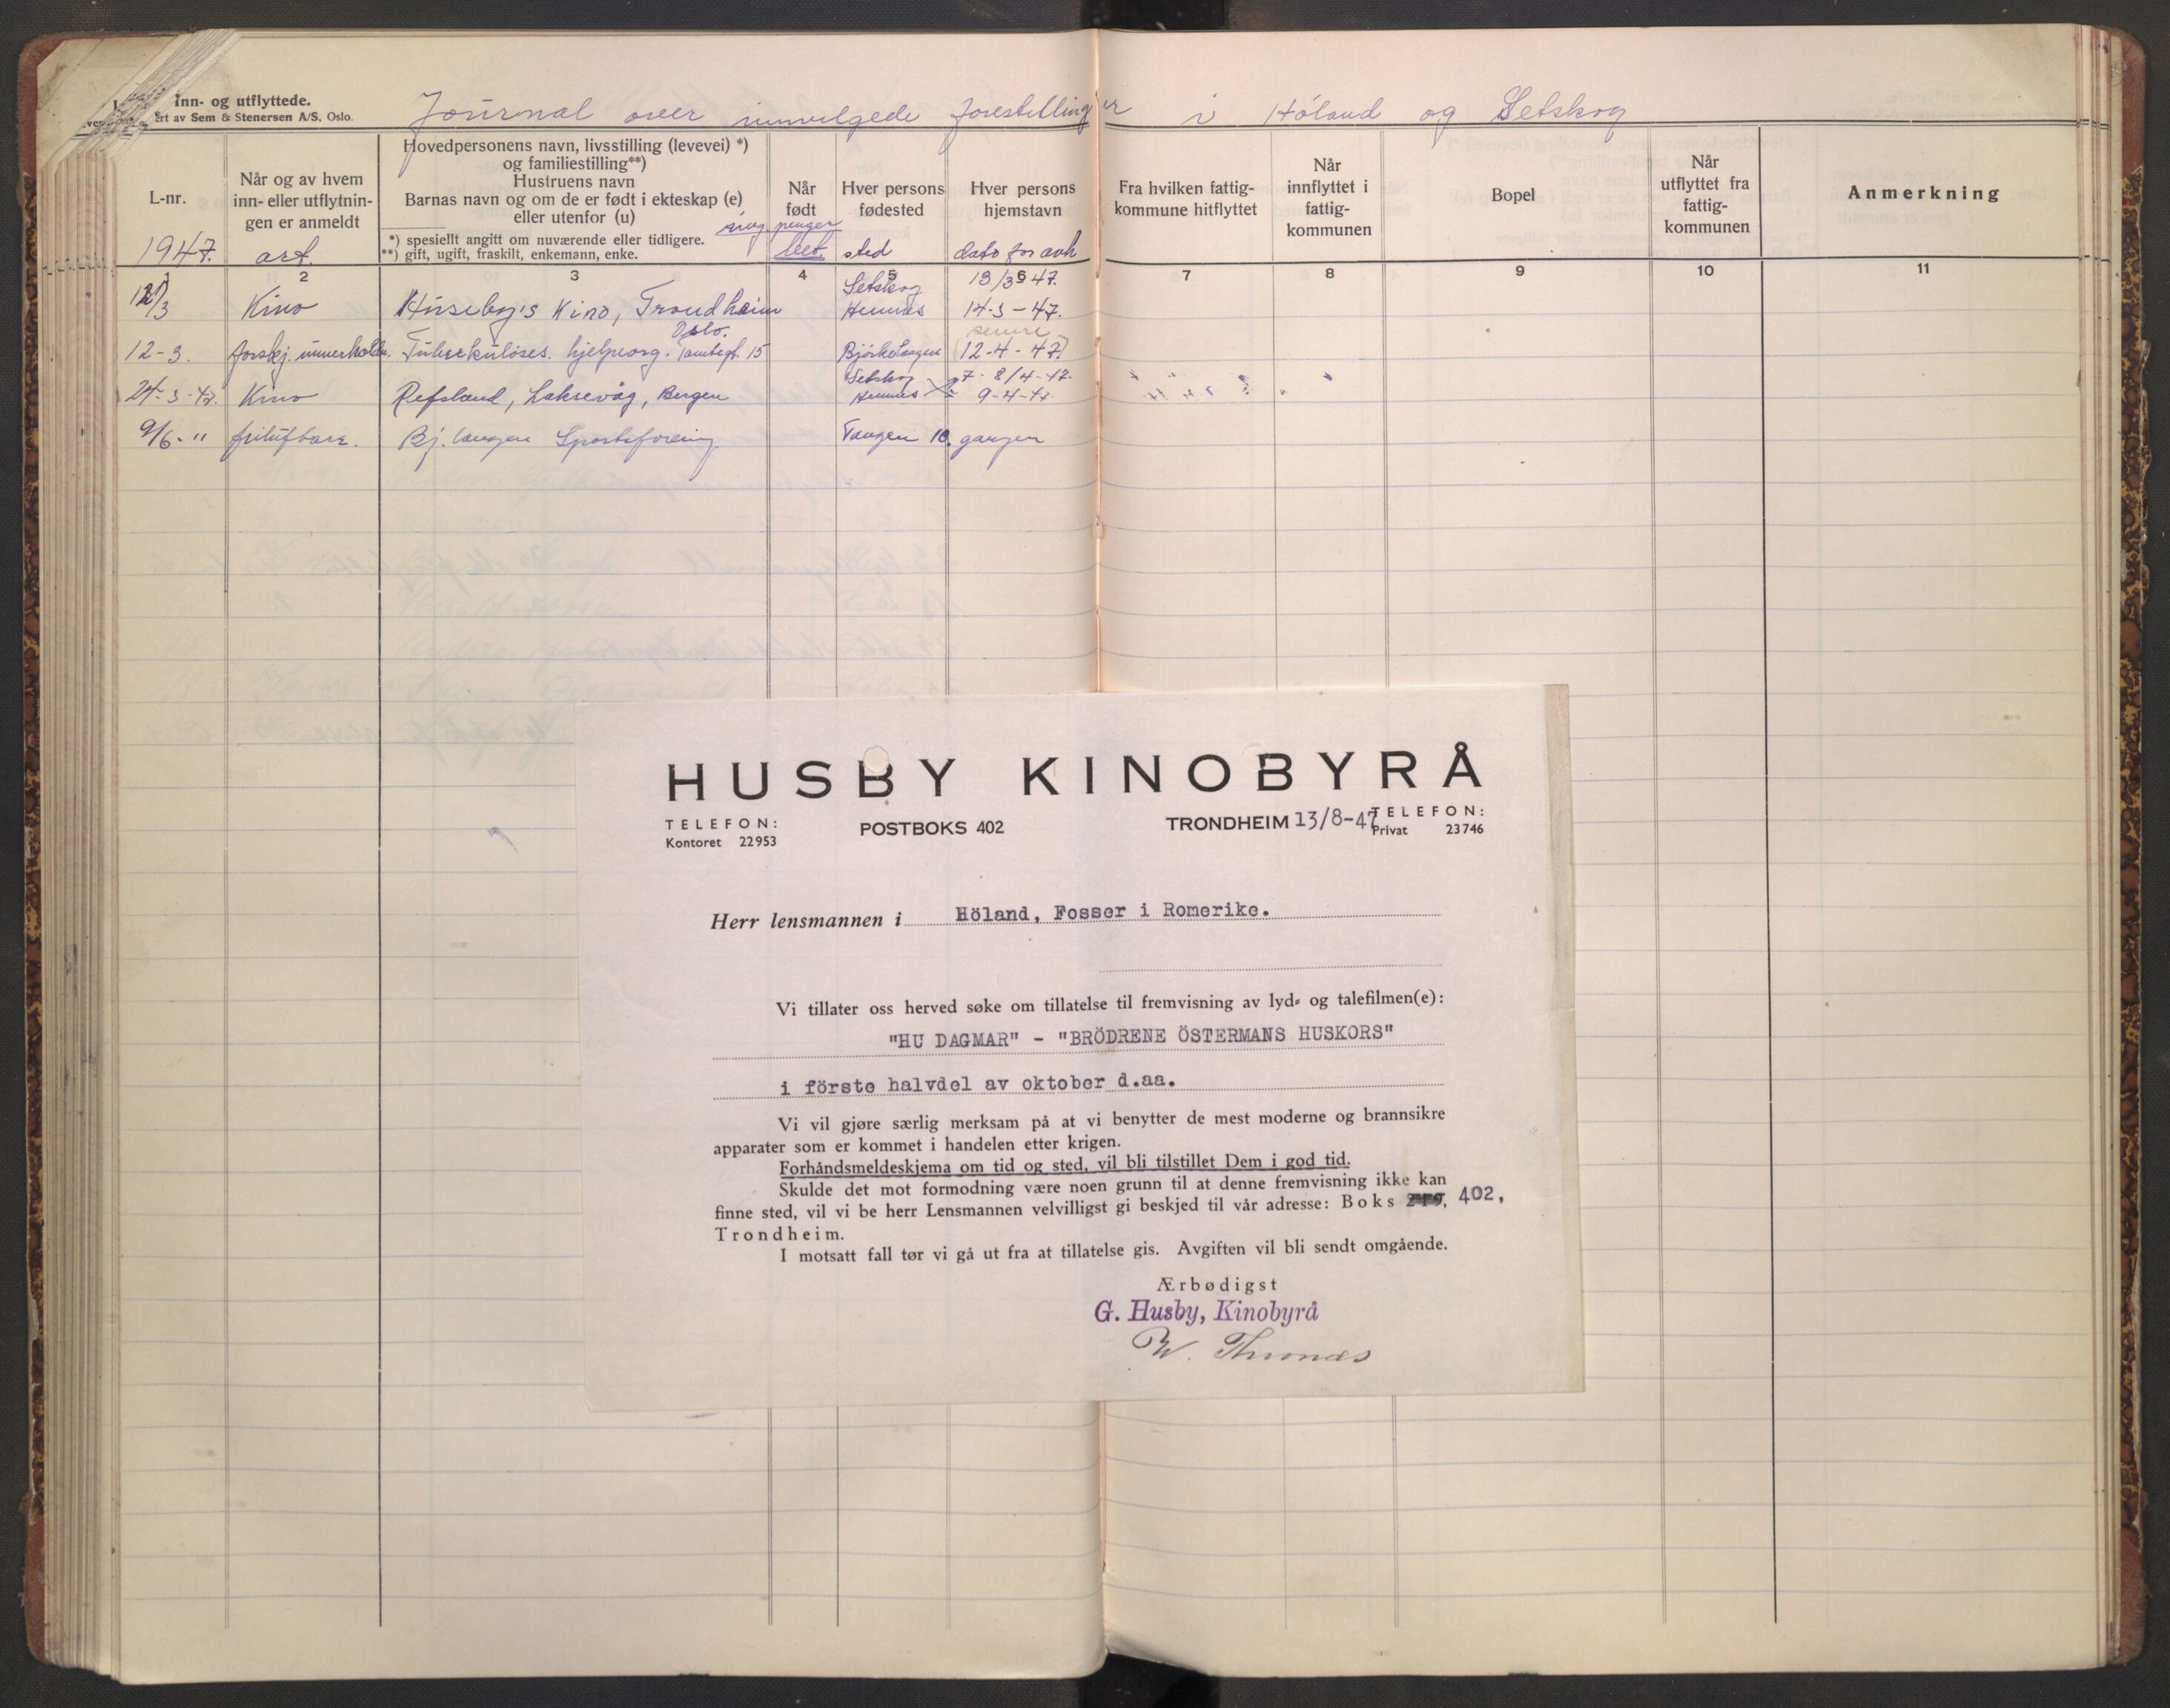 Inn- og utflyttede.
ert av Sem & Stenersen A/S, Oslo.
Journal over innvilgede forestillinger i Höland og Setskog
L-nr.
Når og av hvem
inn- eller utflytnin-
gen er anmeldt
Hovedpersonens navn, livsstilling (levevei) *)
og familiestilling**)
Hustruens navn
Barnas navn og om de er født i ekteskap (e)
eller utenfor (u)
*) spesielt angitt om nuværende eller tidligere.
**) gift, ugift, fraskilt, enkemann, enke.
Når
født
Hver persons
fødested
Hver persons
hjemstavn
Fra hvilken fattig-
kommune hitflyttet
Når
innflyttet i
fattig-
kommunen
Bopel
Når
utflyttet fra
fattig-
kommunen
Anmerkning
1947. art. penger bet. sted dato for avh
1 2 3 4 5 6 7 8 9 10 11
Setskog 13/3 47.
12/3 Kino Huseby's Kino, Trondheim Hemnes 14-3-47.
Oslo. senere
12-3. forskj. Tuberkuløses hjelpeorg. 15 Björkelangen (12-4-47)
Setskog 7-8/4-47.
24-3-47. Kino Refsland, Laksevåg, Bergen Hemnes 9-4-47
9/6-" friluftsarr. Bj. langen Sportsforening Tangen 10 ganger
HUSBY KINOBYRÅ
TELEFON:
Kontoret 22953
POSTBOKS 402
TRONDHEIM 13/8-47
TELEFON:
Privat 23746
Herr lensmannen i Höland, Fosser i Romerike.
Vi tillater oss herved søke om tillatelse til fremvisning av lyd- og talefilmen(e):
"HU DAGMAR" - "BRÖDRENE ÖSTERMANS HUSKORS"
i förste halvdel av oktober d.aa.
Vi vil gjøre særlig merksam på at vi benytter de mest moderne og brannsikre
apparater som er kommet i handelen etter krigen.
Forhåndsmeldeskjema om tid og sted, vil bli tilstillet Dem i god tid.
Skulde det mot formodning være noen grunn til at denne fremvisning ikke kan
finne sted, vil vi be herr Lensmannen velvilligst gi beskjed til vår adresse: Boks 402,
Trondheim.
I motsatt fall tør vi gå ut fra at tillatelse gis. Avgiften vil bli sendt omgående.
Ærbødigst
G. Husby, Kinobyrå
W. Thomas